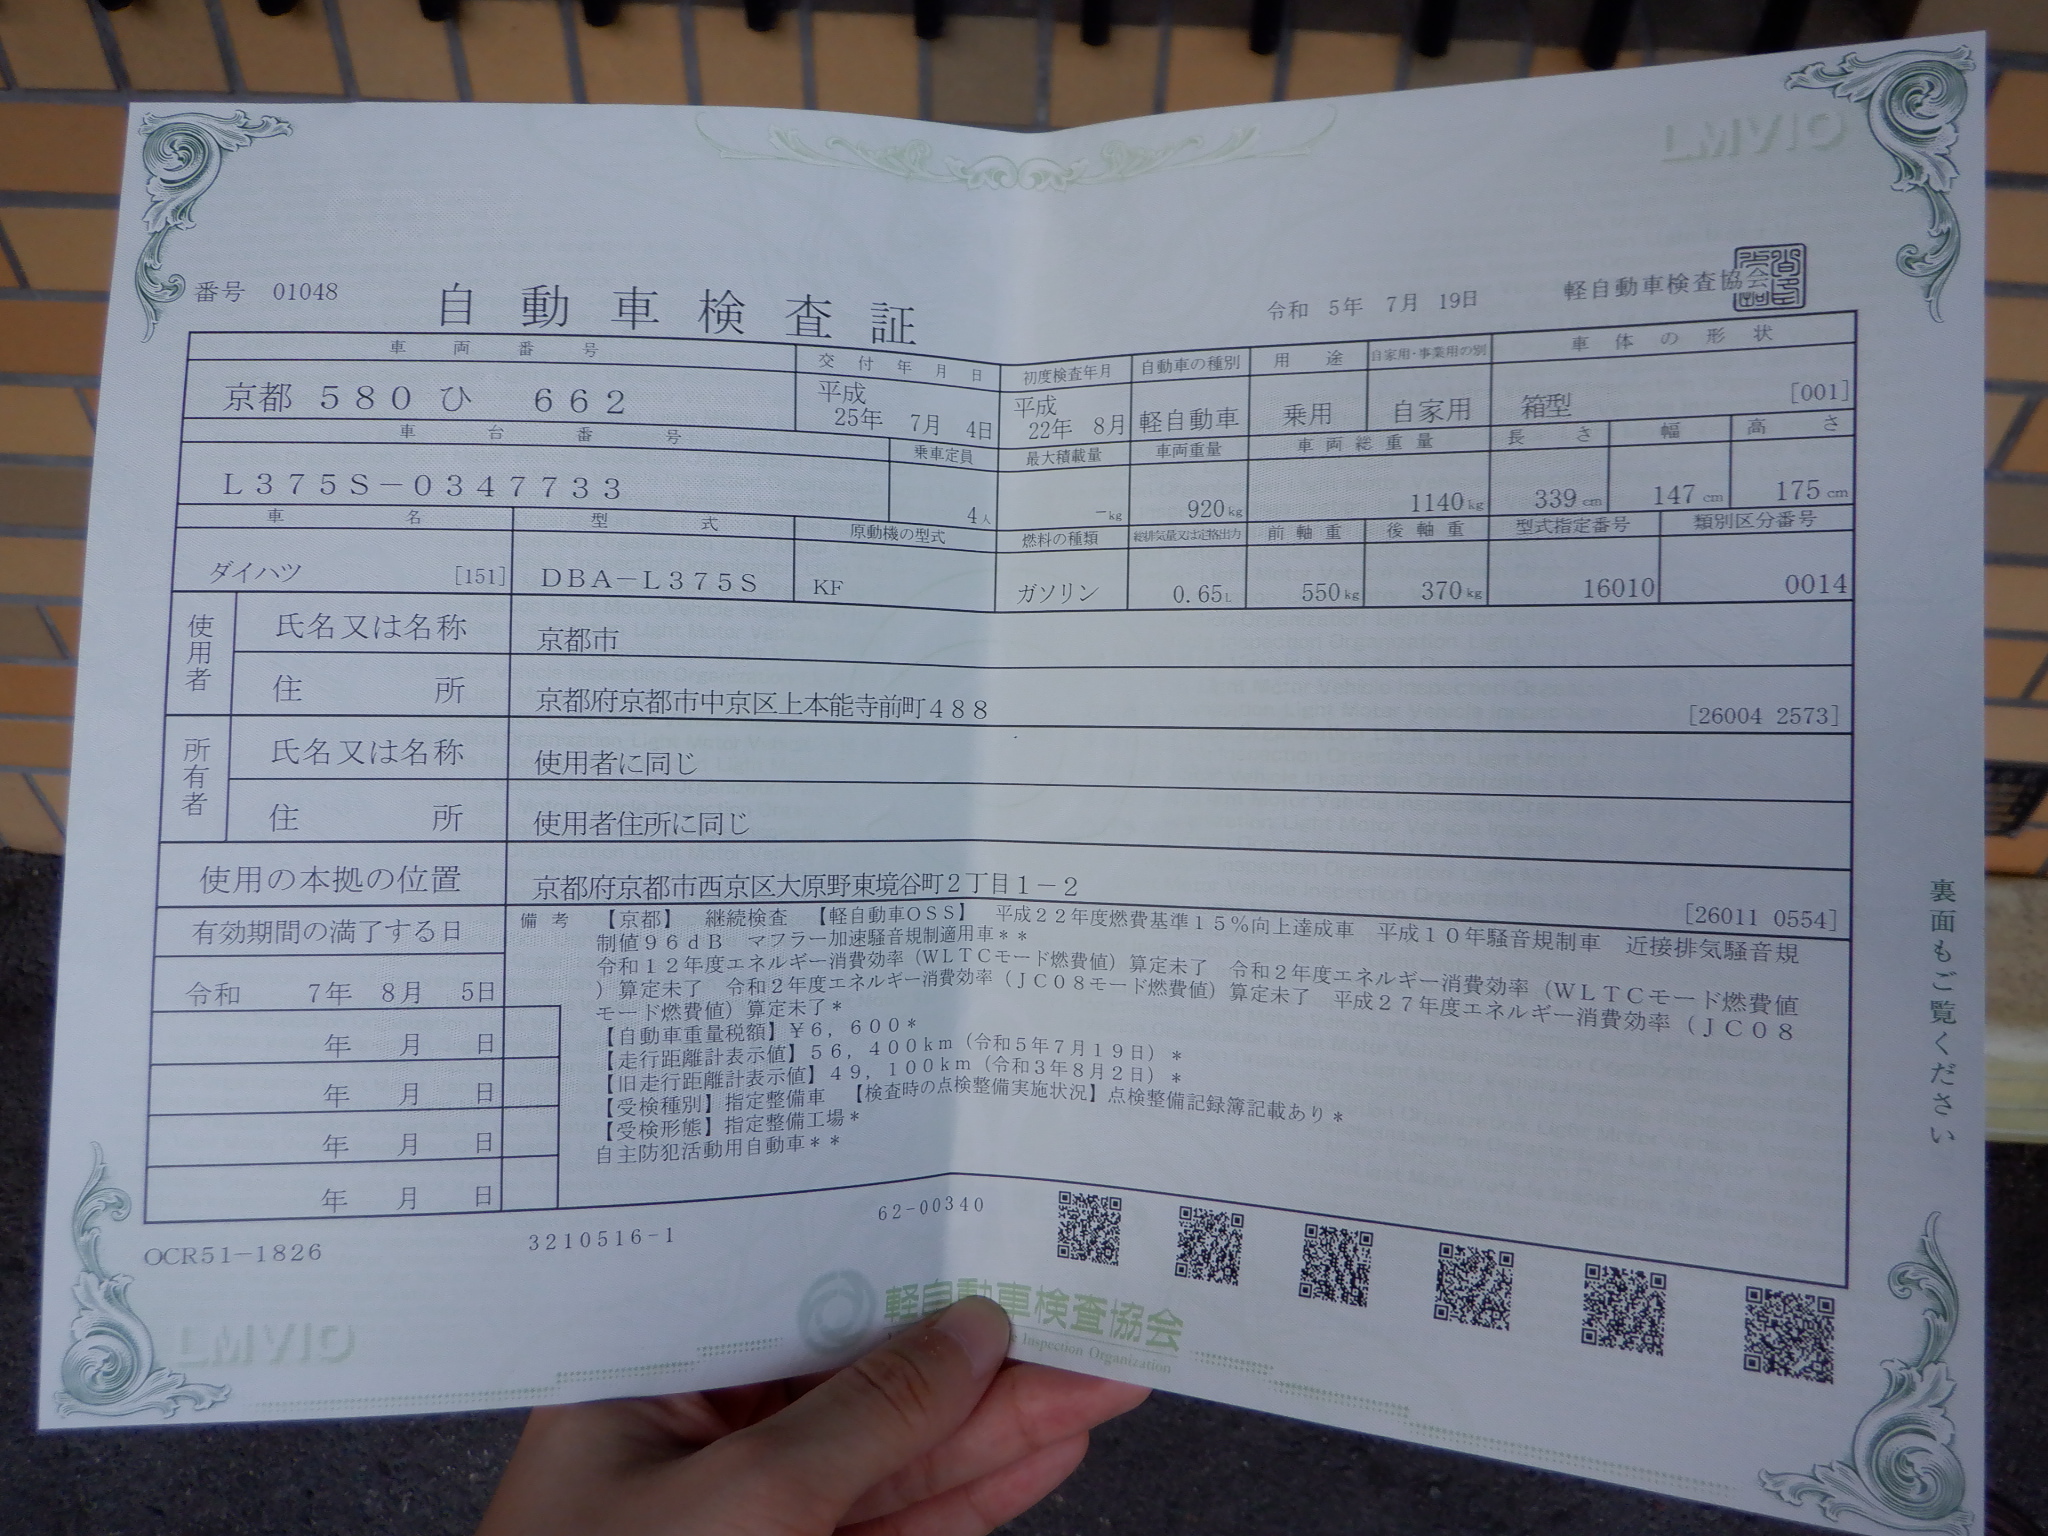 LMVIO
番号 01048
自動車検査証
令和 5年 7月 19日
軽自動車検査協会
車両番号
交付年月日
初度検査年月
自動車の種別
用途
自家用・事業用の別
車体の形状
京都 580 ひ 662
平成 25年 7月 4日
平成 22年 8月
軽自動車
乗用
自家用
箱型 [001]
車台番号
乗車定員
最大積載量
車両重量
車両総重量
長さ
幅
高さ
L375S-0347733
4人
-kg
920kg
1140kg
339cm
147cm
175cm
車名
型式
原動機の型式
燃料の種類
総排気量又は定格出力
前軸重
後軸重
型式指定番号
類別区分番号
ダイハツ [151]
DBA-L375S
KF
ガソリン
0.65L
550kg
370kg
16010
0014
使用者
氏名又は名称
京都市
住所
京都府京都市中京区上本能寺前町488
[26004 2573]
所有者
氏名又は名称
使用者に同じ
住所
使用者住所に同じ
使用の本拠の位置
京都府京都市西京区大原野東境谷町2丁目1-2
[26011 0554]
有効期間の満了する日
令和 7年 8月 5日
年 月 日
年 月 日
年 月 日
年 月 日
備考 【京都】 継続検査 【軽自動車OSS】 平成22年度燃費基準15%向上達成車 平成10年騒音規制車 近接排気騒音規
制値96dB マフラー加速騒音規制適用車**
令和12年度エネルギー消費効率(WLTCモード燃費値)算定未了 令和2年度エネルギー消費効率(WLTCモード燃費値
)算定未了 令和2年度エネルギー消費効率(JC08モード燃費値)算定未了 平成27年度エネルギー消費効率(JC08
モード燃費値)算定未了*
【自動車重量税額】¥6,600*
【走行距離計表示値】56,400km(令和5年7月19日)*
【旧走行距離計表示値】49,100km(令和3年8月2日)*
【受検種別】指定整備車 【検査時の点検整備実施状況】点検整備記録簿記載あり*
【受検形態】指定整備工場*
自主防犯活動用自動車**
裏面もご覧ください
OCR51-1826
3210516-1
62-00340
LMVIO
軽自動車検査協会
Inspection Organization